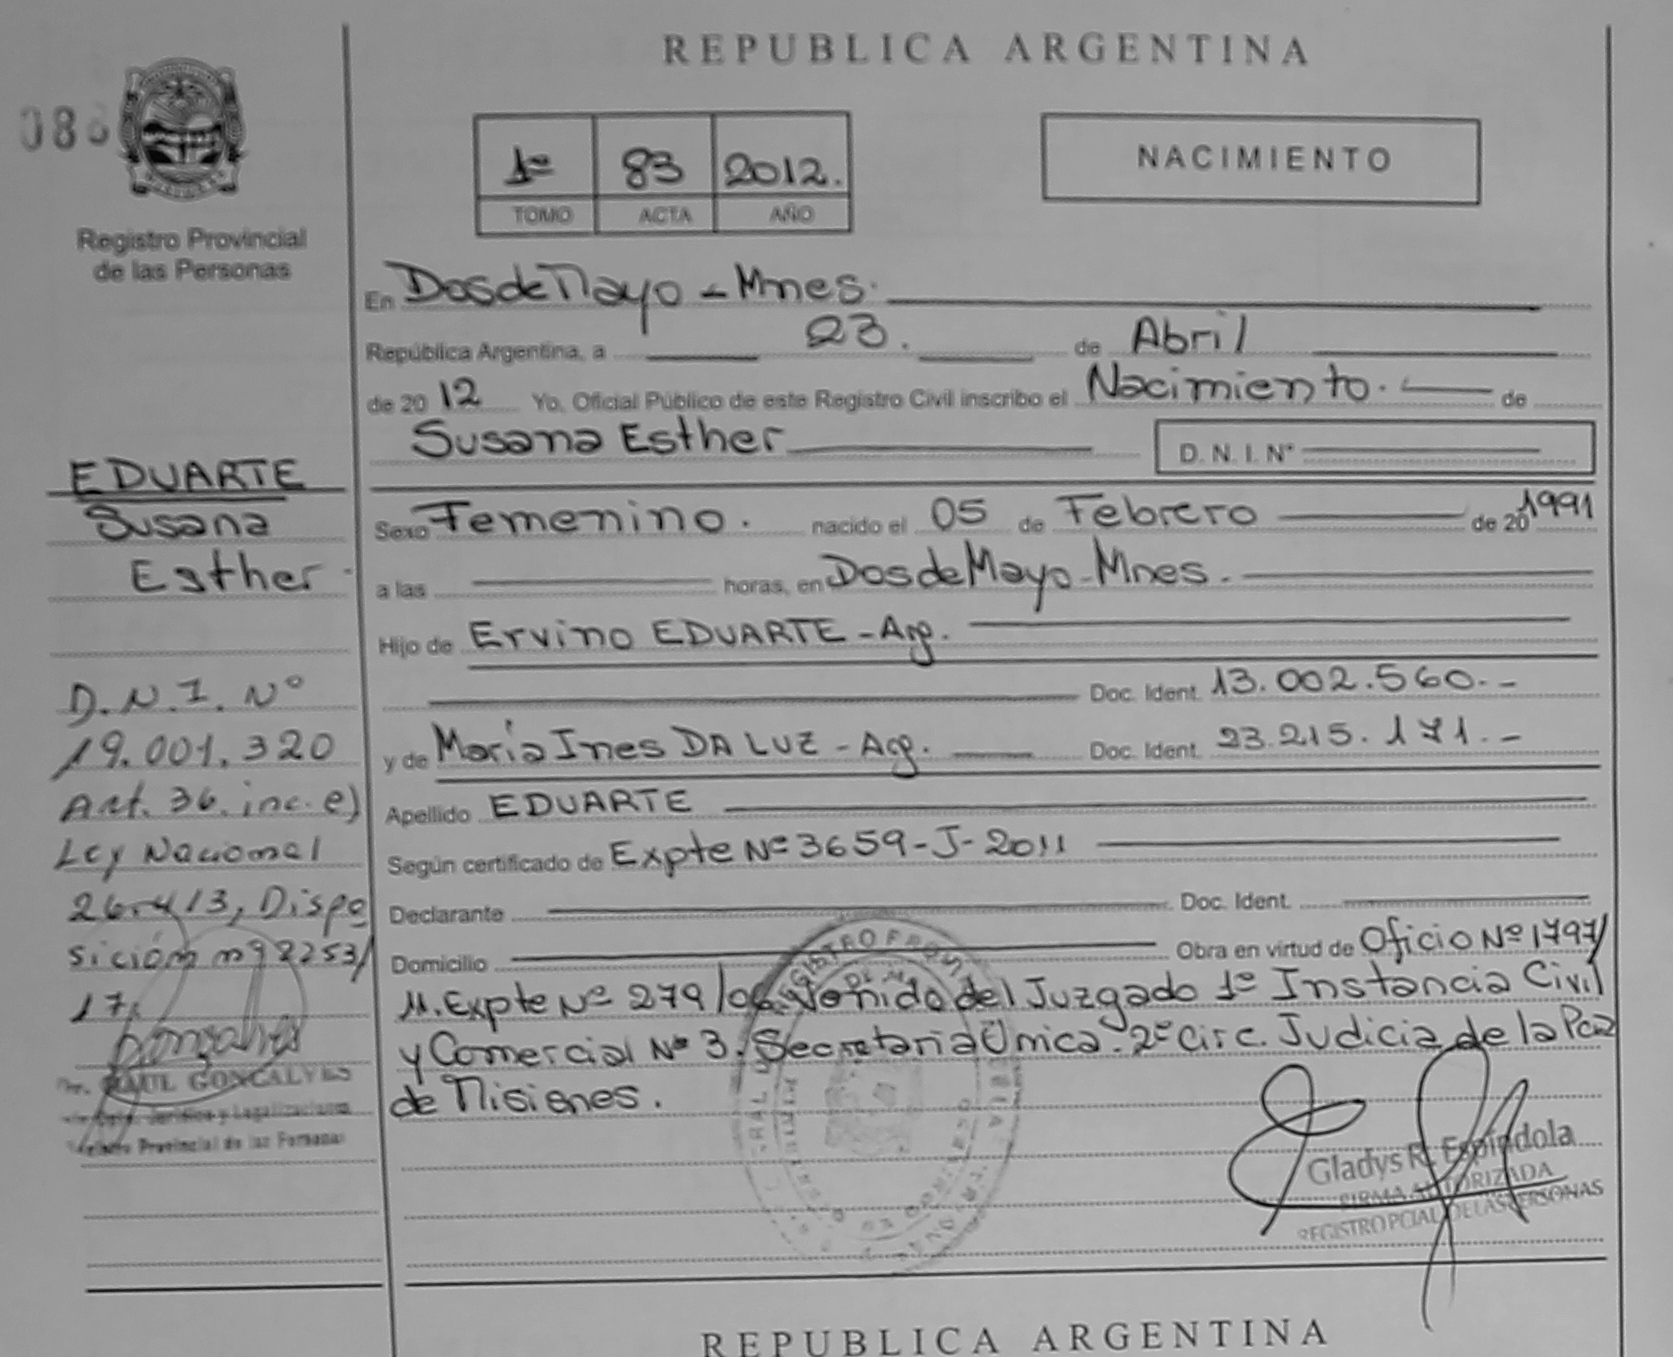 REPUBLICA ARGENTINA
08
Registro Provincial
de las Personas
1º 83 2012.
TOMO ACTA AÑO
NACIMIENTO
En Dos de Mayo - Mnes.
República Argentina, a 23. de Abril
de 20 12 Yo, Oficial Público de este Registro Civil inscribo el Nacimiento. de
Susana Esther D. N. I. Nº
EDUARTE
Susana
Esther.
Sexo Femenino. nacido el 05 de Febrero de 20 1991
a las horas, en Dos de Mayo - Mnes.
Hijo de Ervino EDUARTE - Arg.
Doc. Ident. 13.002.560.-
y de Maria Ines DA LUZ - Arg. Doc. Ident. 23.215.171.-
Apellido EDUARTE
Según certificado de Expte Nº 3659-J-2011
Declarante Doc. Ident.
Domicilio Obra en virtud de Oficio Nº 1797/
11. Expte Nº 279/06 Venido del Juzgado 1º Instancia Civil
y Comercial Nº 3. Secretaria Unica. 2º Circ. Judicia de la Pcia
de Misiones.
D.N.I. Nº
19.001.320
Art. 36. inc. e)
Ley Nacional
26.413, Dispo
sición nº 2253/
17.
RAUL GONCALVES
Jurídico y Legalizaciones
Registro Provincial de las Personas
Gladys R. Espíndola
FIRMA AUTORIZADA
REGISTRO PCIAL DE LAS PERSONAS
REPUBLICA ARGENTINA